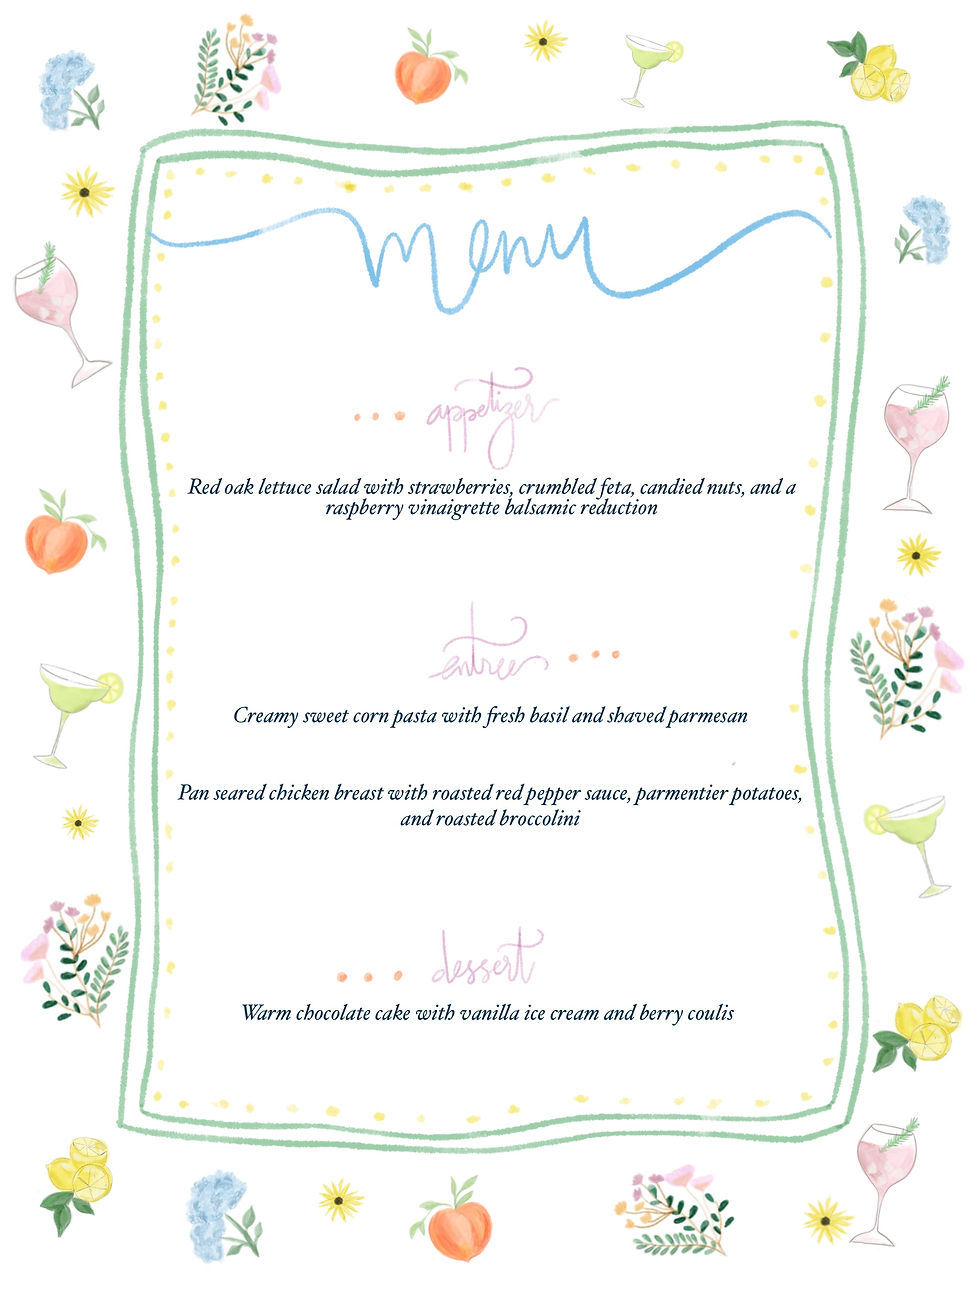 menu
appetizer
Red oak lettuce salad with strawberries, crumbled feta, candied nuts, and a
raspberry vinaigrette balsamic reduction
entree
Creamy sweet corn pasta with fresh basil and shaved parmesan
Pan seared chicken breast with roasted red pepper sauce, parmentier potatoes,
and roasted broccolini
dessert
Warm chocolate cake with vanilla ice cream and berry coulis